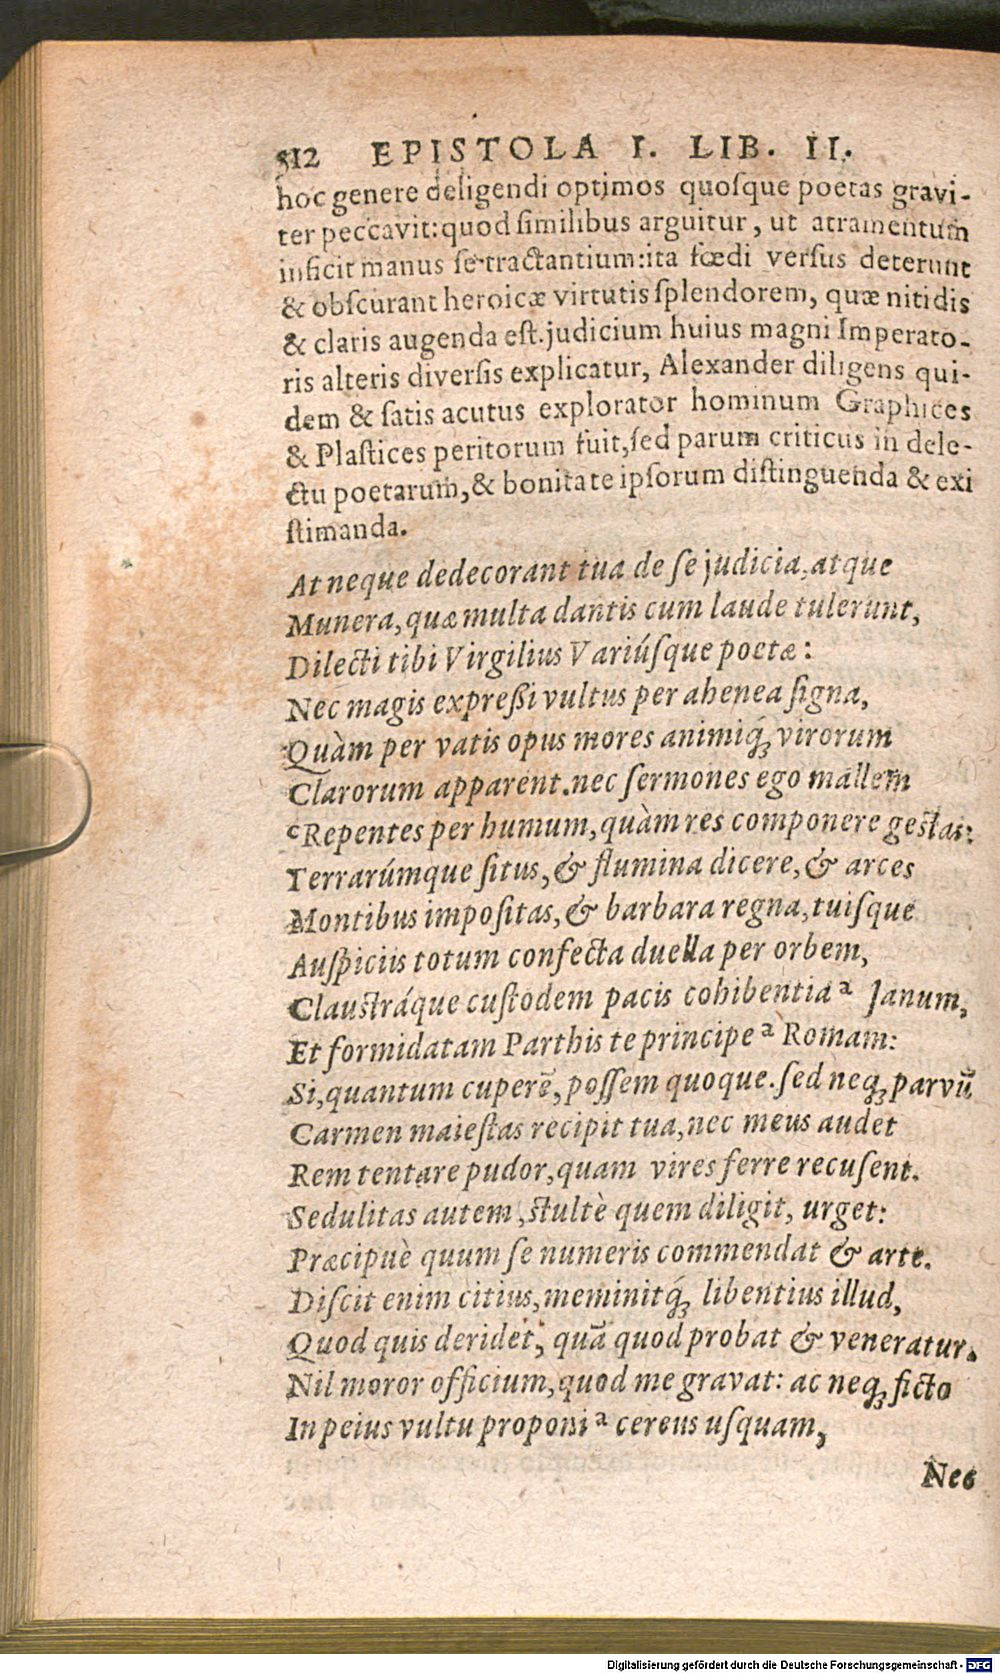 512 EPISTOLA I. LIB. II.
hoc genere deligendi optimos quosque poetas gravi-
ter peccavit: quod similibus arguitur, ut atramentum
inficit manus se tractantium: ita fœdi versus deterunt
& obscurant heroicæ virtutis splendorem, quæ nitidis
& claris augenda est. judicium huius magni Imperato-
ris alteris diversis explicatur, Alexander diligens qui-
dem & satis acutus explorator hominum Graphices
& Plastices peritorum fuit, sed parum criticus in dele-
ctu poetarum, & bonitate ipsorum distinguenda & exi
stimanda.
At neque dedecorant tua de se judicia, atque
Munera, quæ multa dantis cum laude tulerunt,
Dilecti tibi Virgilius Variúsque poetæ:
Nec magis expressi vultus per ahenea signa,
Quàm per vatis opus mores animiq́; virorum
Clarorum apparent. nec sermones ego mallem
ᶜRepentes per humum, quàm res componere gestas:
Terrarúmque situs, & flumina dicere, & arces
Montibus impositas, & barbara regna, tuisque
Auspiciis totum confecta duella per orbem,
Claustráque custodem pacis cohibentia ᵃ Janum,
Et formidatam Parthis te principe ᵃ Romam:
Si, quantum cuperē, possem quoque. sed neq; parvū
Carmen maiestas recipit tua, nec meus audet
Rem tentare pudor, quam vires ferre recusent.
Sedulitas autem, stultè quem diligit, urget:
Præcipuè quum se numeris commendat & arte.
Discit enim citius, meminitq́; libentius illud,
Quod quis deridet, quā quod probat & veneratur.
Nil moror officium, quod me gravat: ac neq; ficto
In peius vultu proponi ᵃ cereus usquam,
Nec
Digitalisierung gefördert durch die Deutsche Forschungsgemeinschaft - DFG